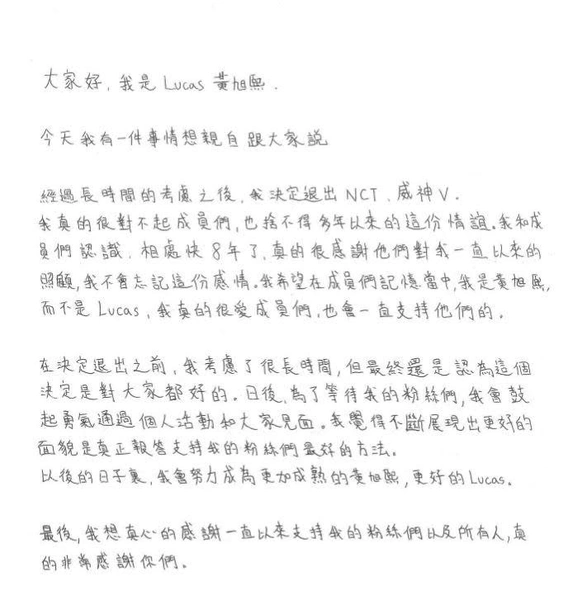 大家好，我是 Lucas 黃旭熙．
今天我有一件事情想親自跟大家說
經過長時間的考慮之後，我決定退出 NCT、威神V．
我真的很對不起成員們，也捨不得多年以來的這份情誼。我和成
員們認識、相處快8年了，真的很感謝他們對我一直以來的
照顧，我不會忘記這份感情。我希望在成員們記憶當中，我是黃旭熙，
而不是 Lucas，我真的很愛成員們，也會一直支持他們的。
在決定退出之前，我考慮了很長時間，但最終還是認為這個
決定是對大家都好的。日後，為了等待我的粉絲們，我會鼓
起勇氣通過個人活動和大家見面。我覺得不斷展現出更好的
面貌是真正報答支持我的粉絲們最好的方法。
以後的日子裏，我會努力成為更加成熟的黃旭熙，更好的Lucas。
最後，我想真心的感謝一直以來支持我的粉絲們以及所有人，真
的非常感謝你們。